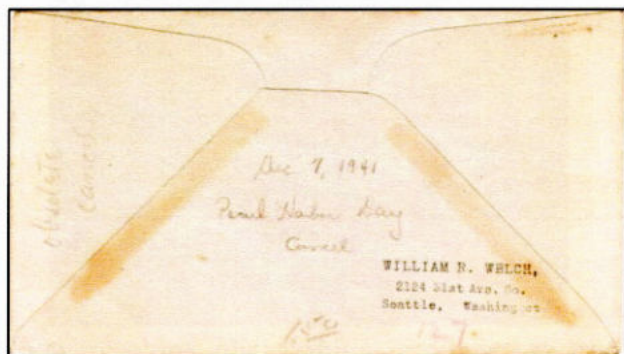 obsolete
cancel
Dec 7, 1941
Pearl Harbor Day
Cancel
WILLIAM R. WELCH,
2124 31st Ave. So.
Seattle, Washington
1.50
127